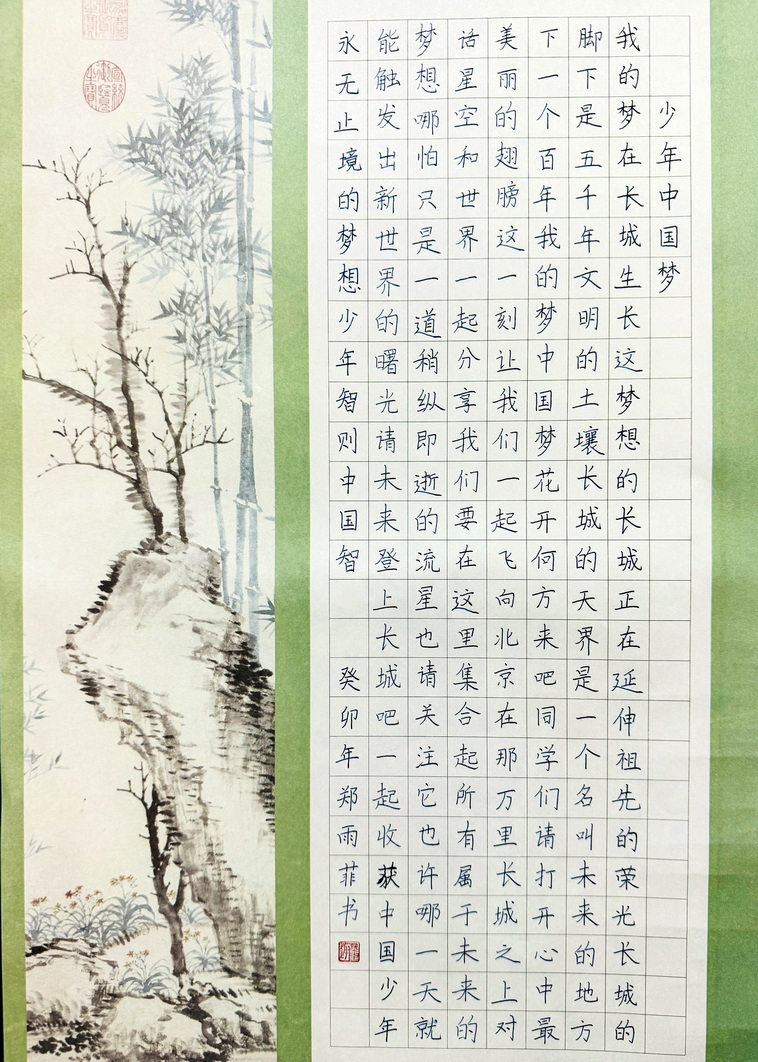 少年中国梦
我的梦在长城生长这梦想的长城正在延伸祖先的荣光长城的
脚下是五千年文明的土壤长城的天界是一个名叫未来的地方
下一个百年我的梦中国梦花开何方来吧同学们请打开心中最
美丽的翅膀这一刻让我们一起飞向北京在那万里长城之上对
话星空和世界一起分享我们要在这里集合起所有属于未来的
梦想哪怕只是一道稍纵即逝的流星也请关注它也许哪一天就
能触发出新世界的曙光请未来登上长城吧一起收获中国少年
永无止境的梦想少年智则中国智
癸卯年郑雨菲书